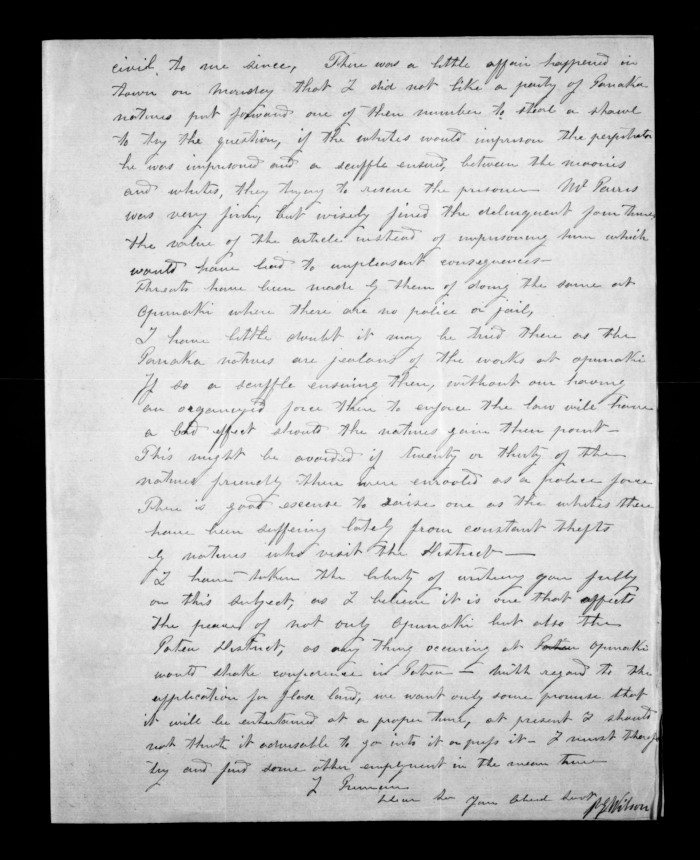 civil, to me since, There was a little affair happened in
town on monday that I did not like a party of Tanaka
natives put forward one of their number to steal a shawl
to try the question, if the whites would imprison the perpetrator
he was imprisoned and a scuffle ensued, between the maoris
and whites, they trying to rescue the prisoner Mr Parris
was very firm, but wisely fined the delinquent four times
the value of the article instead of imprisoning him which
would have led to unpleasant consequences—
Threats have been made by them of doing the same at
Opunaki where there are no police or jail,
I have little doubt it may be tried there as the
Tanaka natives are jealous of the works at opunaki
If so a scuffle ensuing there, without our having
an organized force there to enforce the law will have
a bad effect should the natives gain their point—
This might be avoided if twenty or thirty of the
natives friendly there were enrolled as a police force
There is good excuse to raise one as the whites there
have been suffering lately from constant thefts
by natives who visit the District—
I have taken the liberty of writing you fully
on this subject, as I believe it is one that affects
the peace of not only Opunaki but also the
Patea District, as any thing occuring at Opunaki
would shake confidence in Patea — With regard to the
application for flax land, we want only some promise that
it will be entertained at a proper time, at present I should
not think it advisable to go into it or press it— I must
try and find some other employment in the mean time
I Remain
dear Sir Your Obed Servt
Wilson